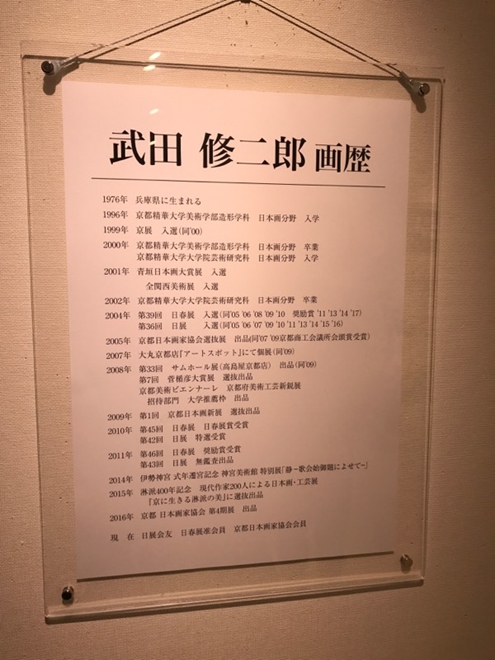 武田 修二郎 画歴
1976年 兵庫県に生まれる
1996年 京都精華大学美術学部造形学科 日本画分野 入学
1999年 京展 入選(同'00)
2000年 京都精華大学美術学部造形学科 日本画分野 卒業
京都精華大学大学院芸術研究科 日本画分野 入学
2001年 青垣日本画大賞展 入選
全関西美術展 入選
2002年 京都精華大学大学院芸術研究科 日本画分野 卒業
2004年 第39回 日春展 入選(同'05 '06 '08 '09 '10 奨励賞 '11 '13 '14 '17)
第36回 日展 入選(同'05 '06 '07 '09 '10 '11 '13 '14 '15 '16)
2005年 京都日本画家協会選抜展 出品(同'07 '09京都商工会議所会頭賞受賞)
2007年 大丸京都店「アートスポット」にて個展(同'09)
2008年 第33回 サムホール展(高島屋京都店) 出品(同'09)
第7回 菅楯彦大賞展 選抜出品
京都美術ビエンナーレ 京都府美術工芸新鋭展
招待部門 大学推薦枠 出品
2009年 第1回 京都日本画新展 選抜出品
2010年 第45回 日春展 日春展賞受賞
第42回 日展 特選受賞
2011年 第46回 日春展 奨励賞受賞
第43回 日展 無鑑査出品
2014年 伊勢神宮 式年遷宮記念 神宮美術館 特別展「静-歌会始御題によせて-」
2015年 琳派400年記念 現代作家200人による日本画・工芸展
『京に生きる琳派の美』に選抜出品
2016年 京都 日本画家協会 第4期展 出品
現 在 日展会友 日春展准会員 京都日本画家協会会員